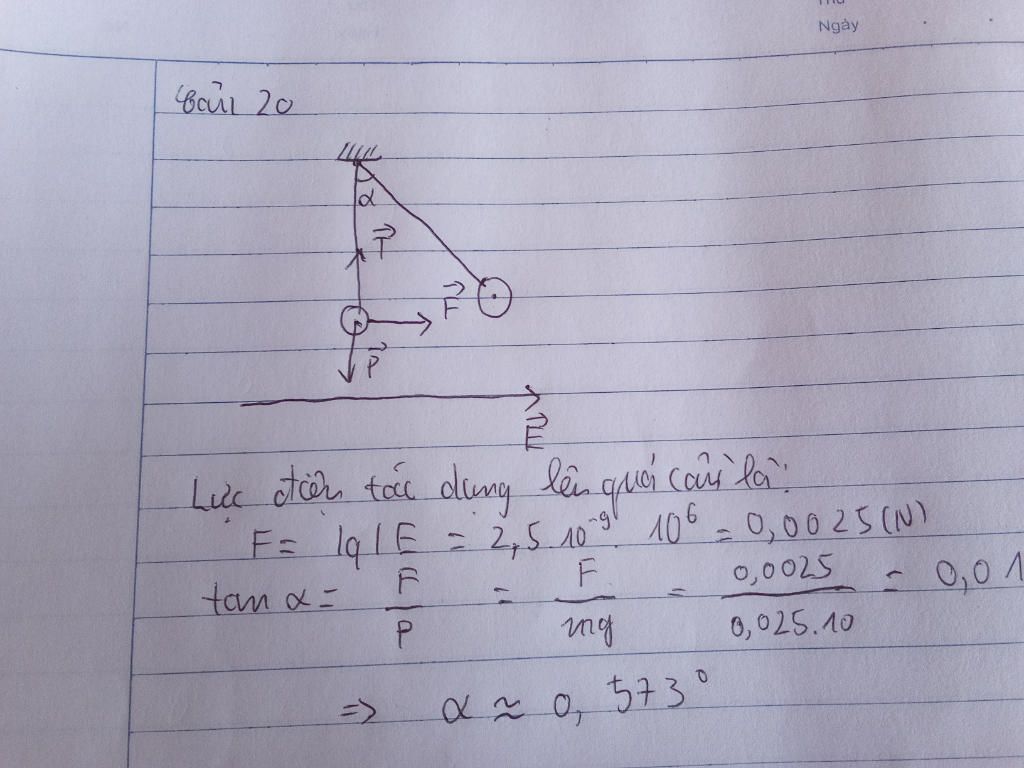 Thứ
Ngày
Câu 20
α
T
F
P
E
Lực điện tác dụng lên quả cầu là:
F = |q|E = 2,5.10⁻⁹. 10⁶ = 0,0025(N)
tan α = F/P = F/mg = 0,0025/0,025.10 = 0,01
=> α ≈ 0,573°